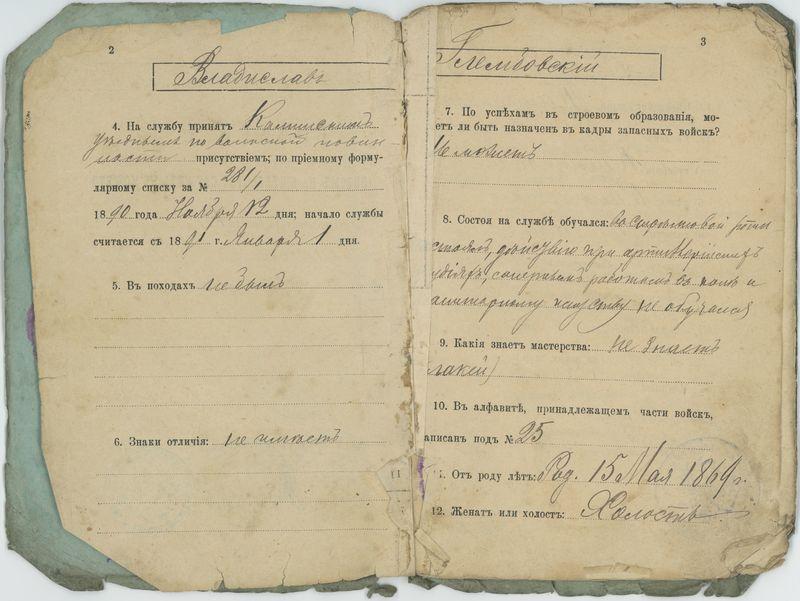 2
Владиславъ
4. На службу принятъ
уѣзднымъ по воинской повин
ности присутствіемъ; по пріемному форму-
лярному списку за № 281/1
1890 года Ноября 12 дня; начало службы
считается съ 1891 г. Января 1 дня.
5. Въ походахъ не былъ
6. Знаки отличія: не имѣетъ
11
3
Глембовскій
7. По успѣхамъ въ строевомъ образованія, мо-
етъ ли быть назначенъ въ кадры запасныхъ войскъ?
Не можетъ
8. Состоя на службѣ обучался: въ стрѣлковой ротѣ
дѣйствію при артиллерійских
сапернымъ работамъ въ полѣ и
не обучался
9. Какія знаетъ мастерства: не знаетъ
лакей)
10. Въ алфавитѣ, принадлежащемъ части войскъ,
аписанъ подъ № 25
1. Отъ роду лѣтъ: Род. 15 Мая 1869 г.
12. Женатъ или холостъ: Холостъ